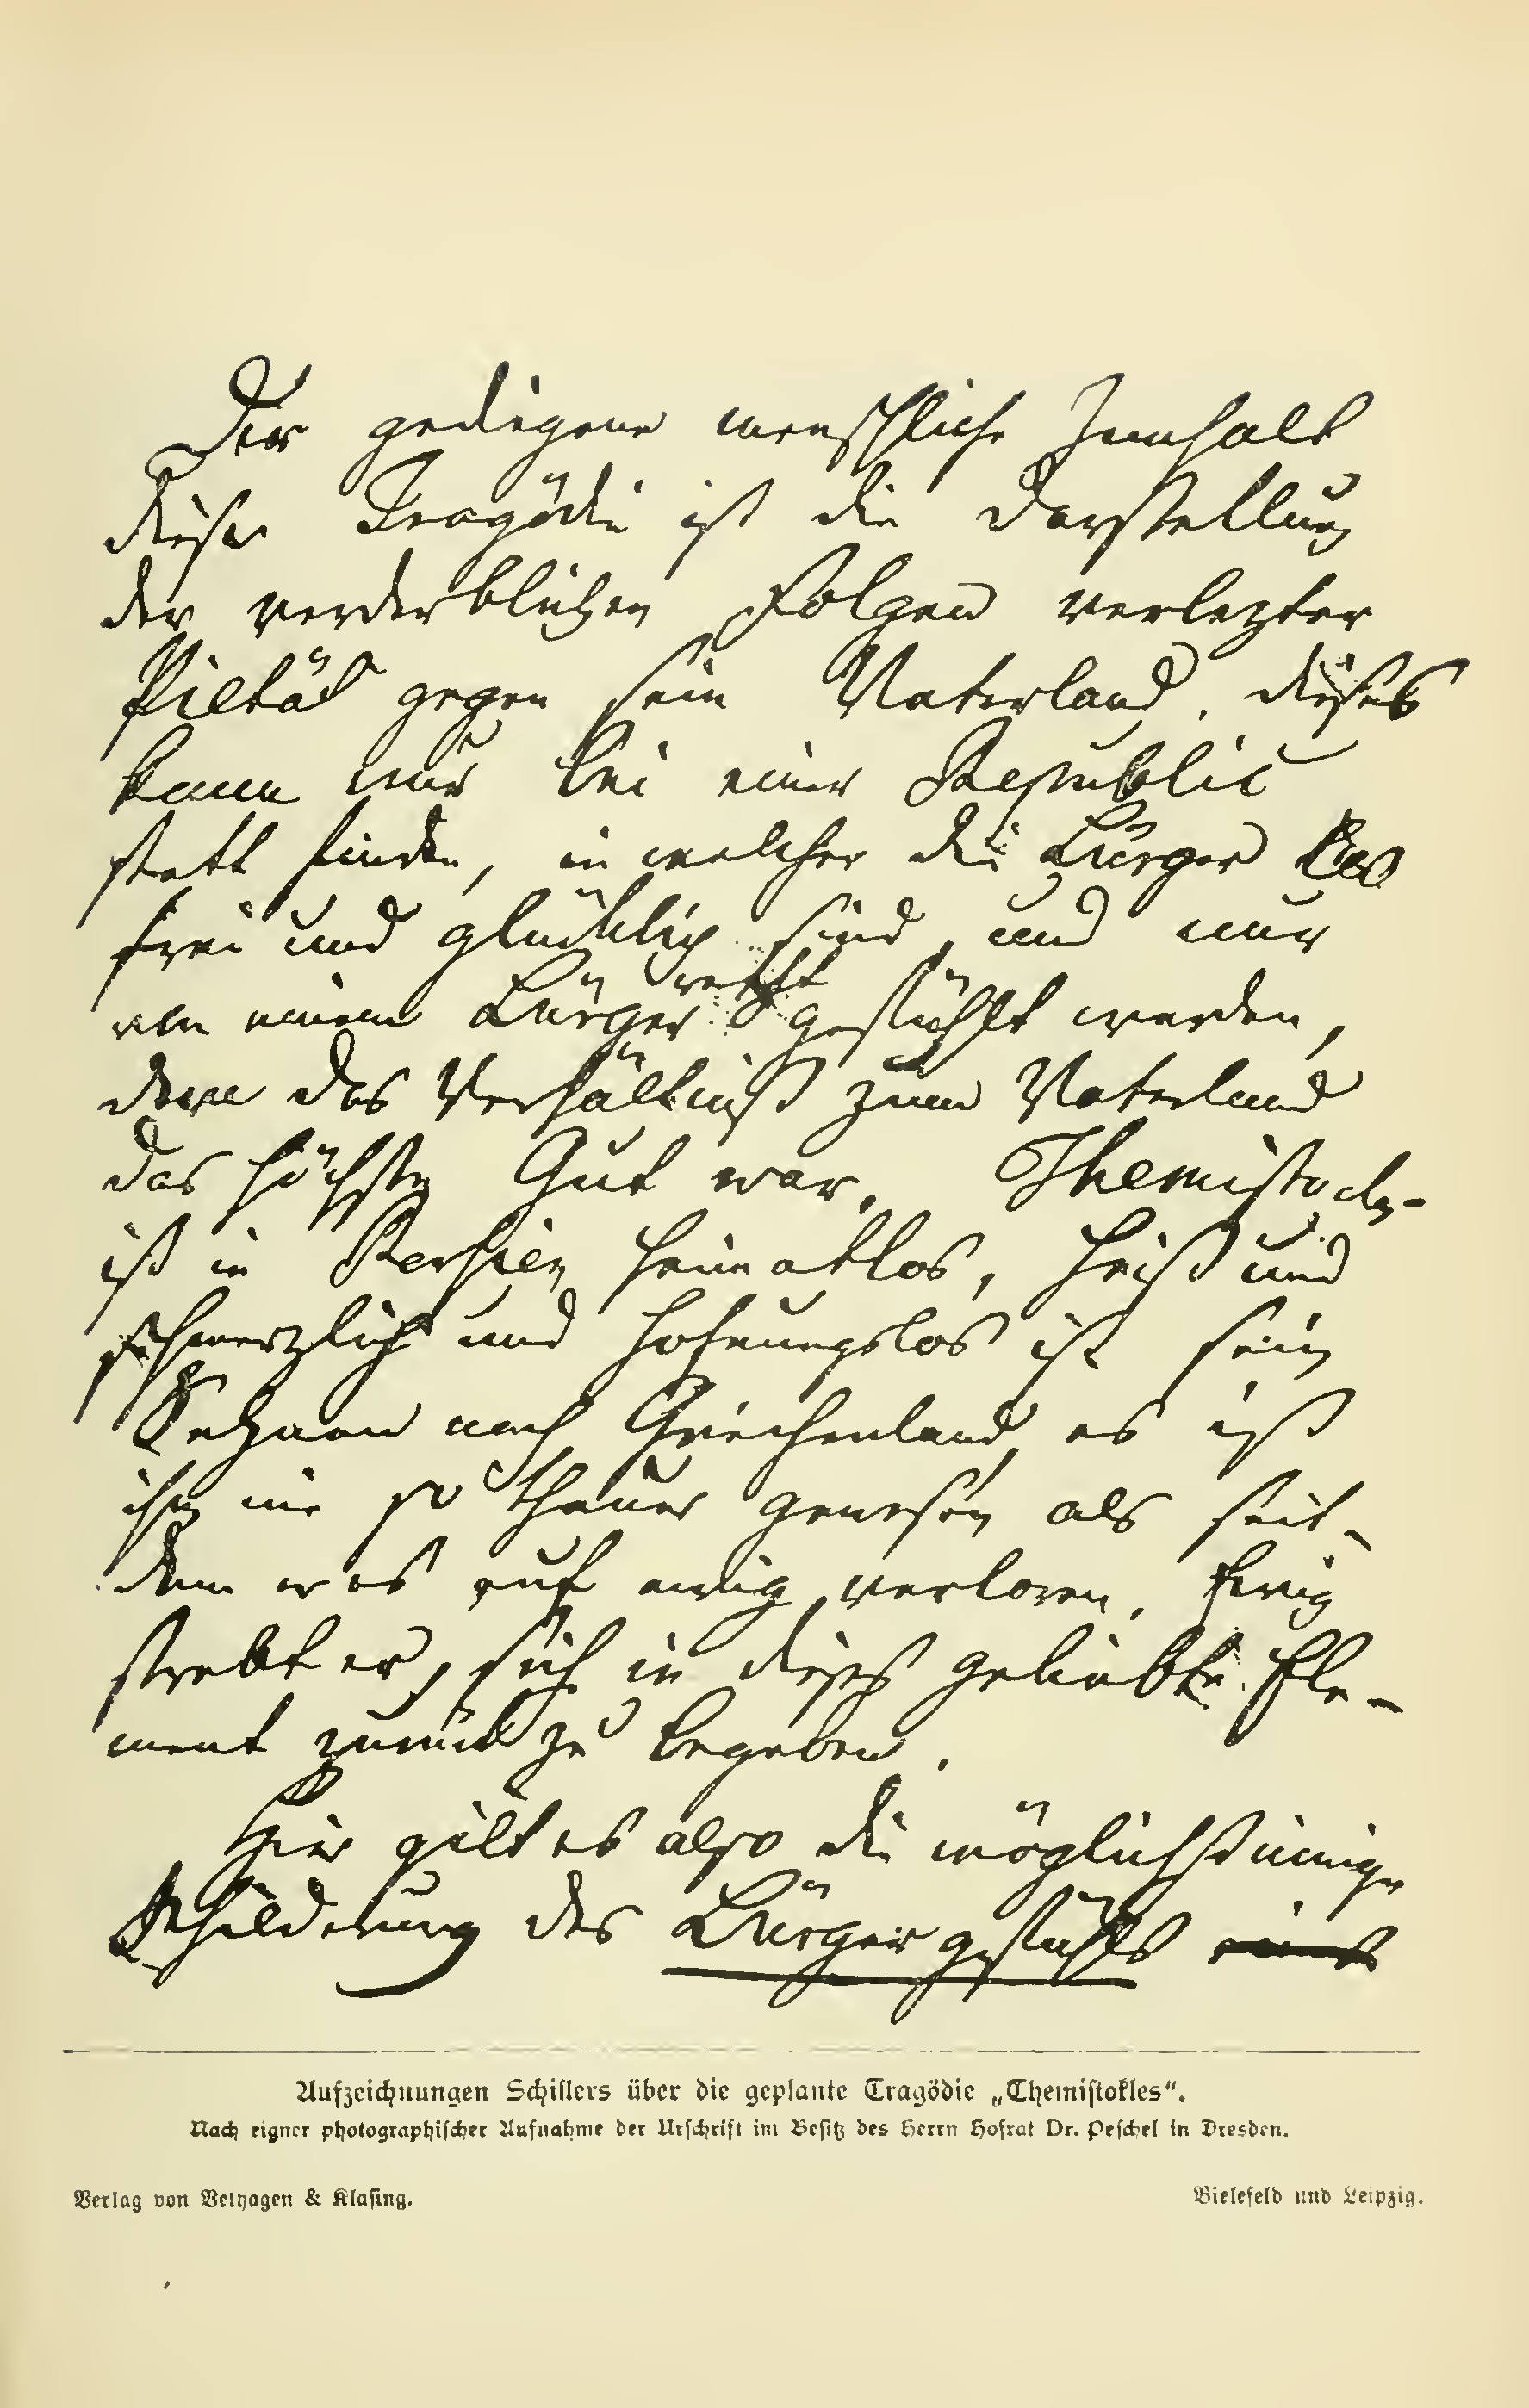 Der gediegene menschliche Innhalt
dieser Tragödie ist die Darstellung
der verderblichen Folgen verlezter
Pietät gegen sein Vaterland. dieses
kann nur bei einer Republic
statt finden, in welcher die Bürger
frei und glücklich sind, und nur
von einem Bürger recht gefühlt werden,
dem das Verhältniß zum Vaterland
das höchste Gut war. Themistocles
ist in Persien heimatlos, heiß und
schmerzlich und hofnungslos ist sein
Sehnen nach Griechenland, es ist
ihm nie so theuer gewesen als seit-
dem er es auf ewig verloren. Ewig
strebt er, sich in dieses geliebte Ele-
ment zurück zu begeben.
Hier gilt es also die möglichst innige
Schilderung des Bürgergefühls eines
Aufzeichnungen Schillers über die geplante Tragödie „Themistokles“.
Nach eigner photographischer Aufnahme der Urschrift im Besitz des Herrn Hofrat Dr. Peschel in Dresden.
Verlag von Velhagen & Klasing. Bielefeld und Leipzig.